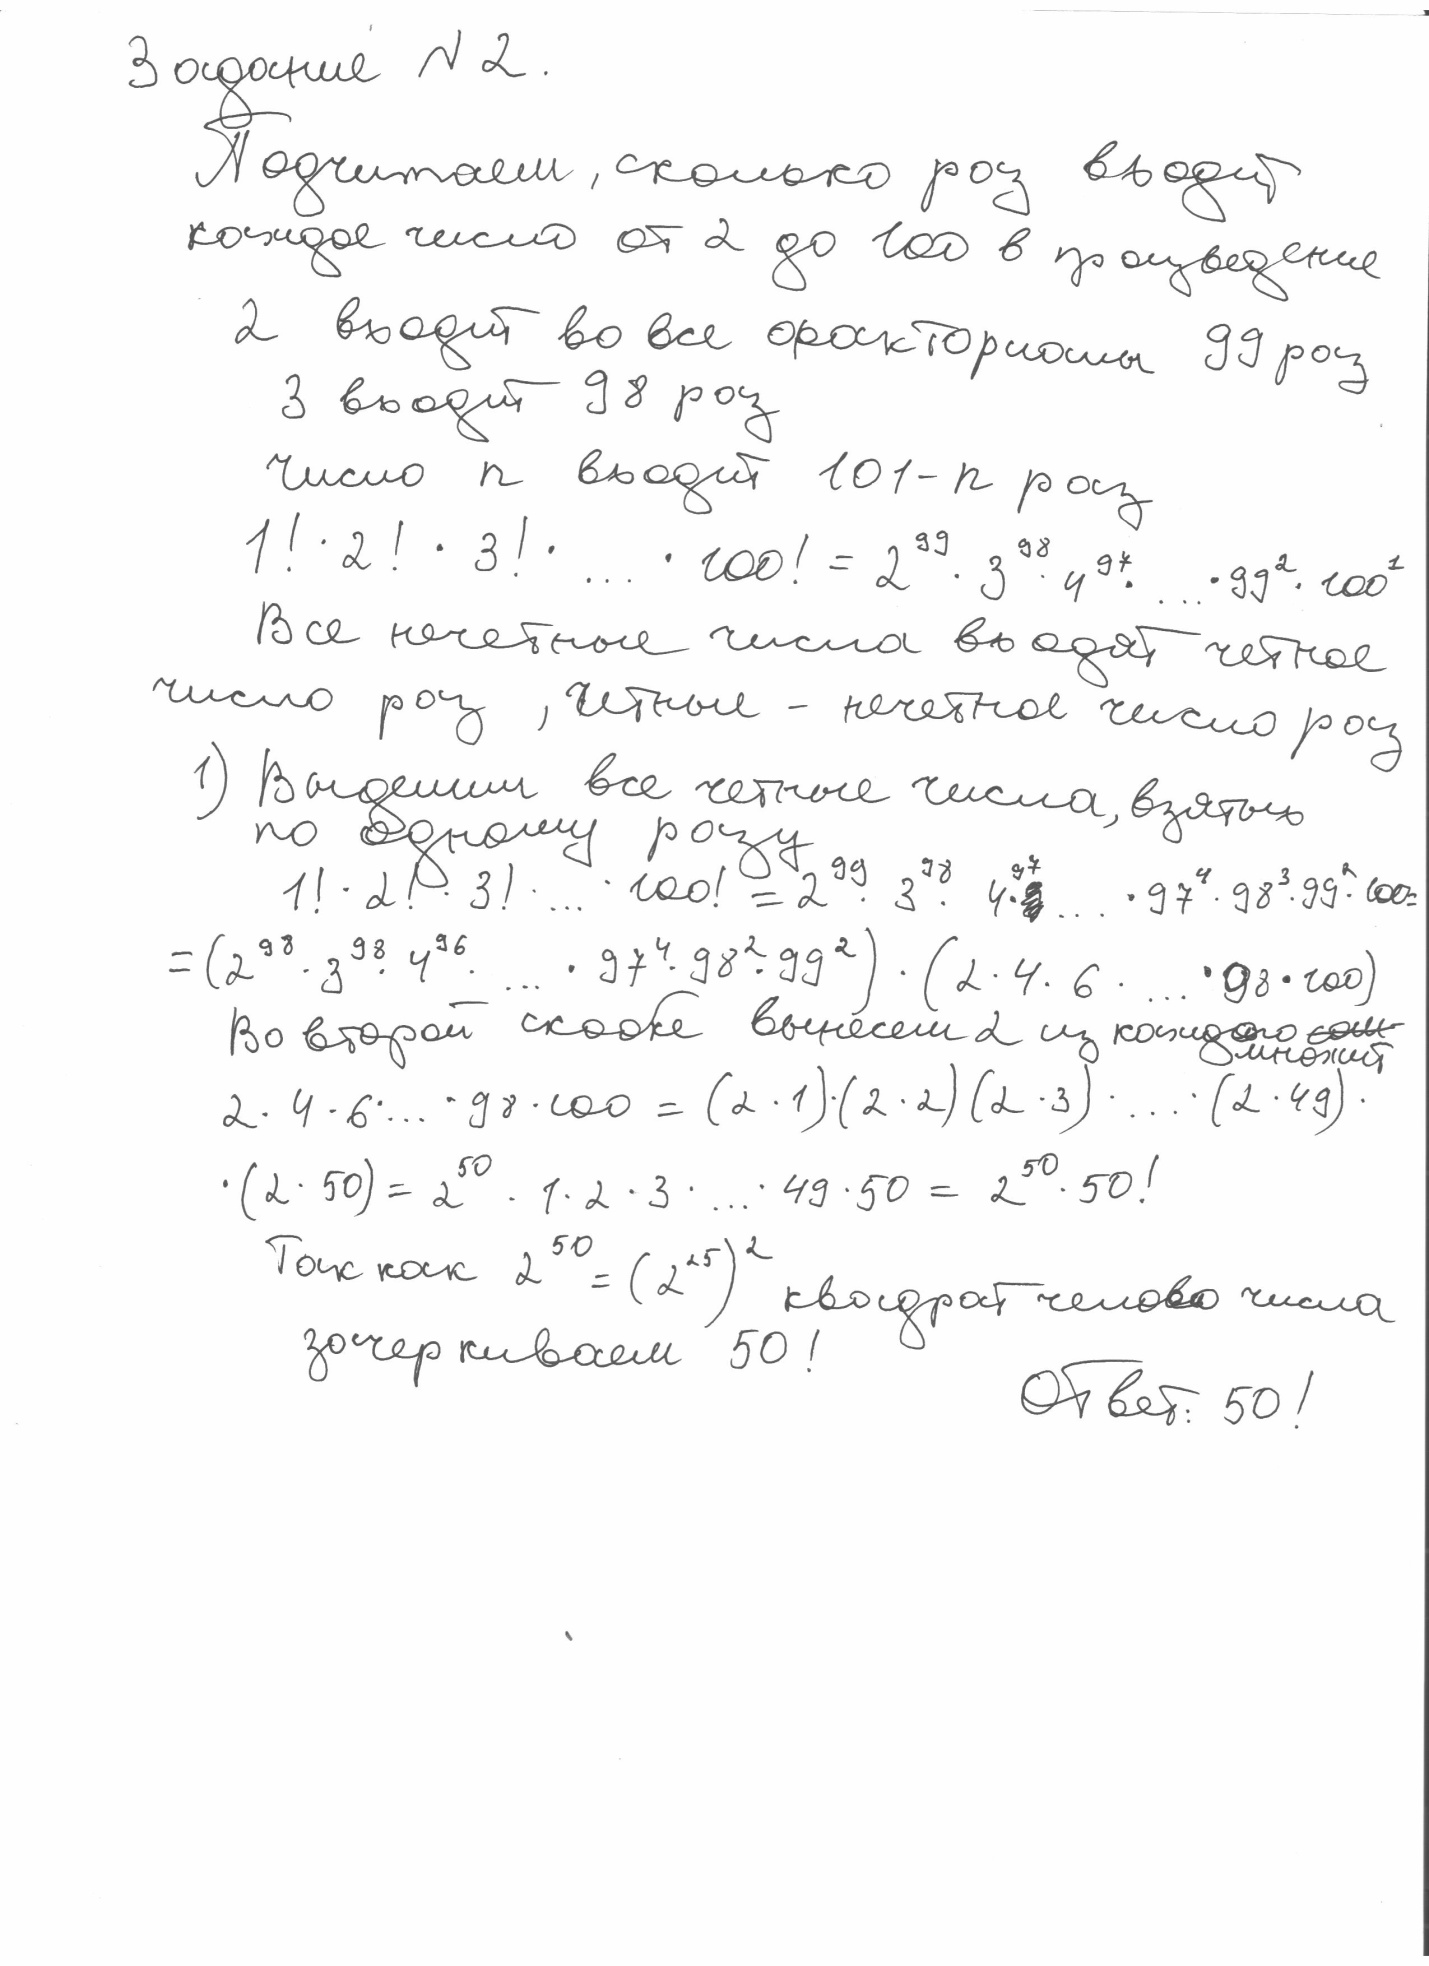 Задание N 2.
Подчитаем, сколько раз входит
каждое число от 2 до 100 в произведение
2 входит во все факториалы 99 раз
3 входит 98 раз
Число n входит 101-n раз
1! · 2! · 3! · ... · 100! = 2⁹⁹ · 3⁹⁸ · 4⁹⁷ · ... · 99² · 100¹
Все нечетные числа входят четное
число раз, четные - нечетное число раз
1) Выделим все четные числа, взятых
по одному разу
1! · 2! · 3! · ... · 100! = 2⁹⁹ · 3⁹⁸ · 4⁹⁷ · ... · 97⁴ · 98³ · 99² · 100 =
= (2⁹⁸ · 3⁹⁸ · 4⁹⁶ · ... · 97⁴ · 98² · 99²) · (2 · 4 · 6 · ... · 98 · 100)
Во второй скобке вынесем 2 из каждого
множит
2 · 4 · 6 · ... · 98 · 100 = (2 · 1) · (2 · 2) (2 · 3) · ... · (2 · 49) ·
· (2 · 50) = 2⁵⁰ · 1 · 2 · 3 · ... · 49 · 50 = 2⁵⁰ · 50!
Так как 2⁵⁰ = (2²⁵)² квадрат челово числа
зачеркиваем 50!
Ответ: 50!